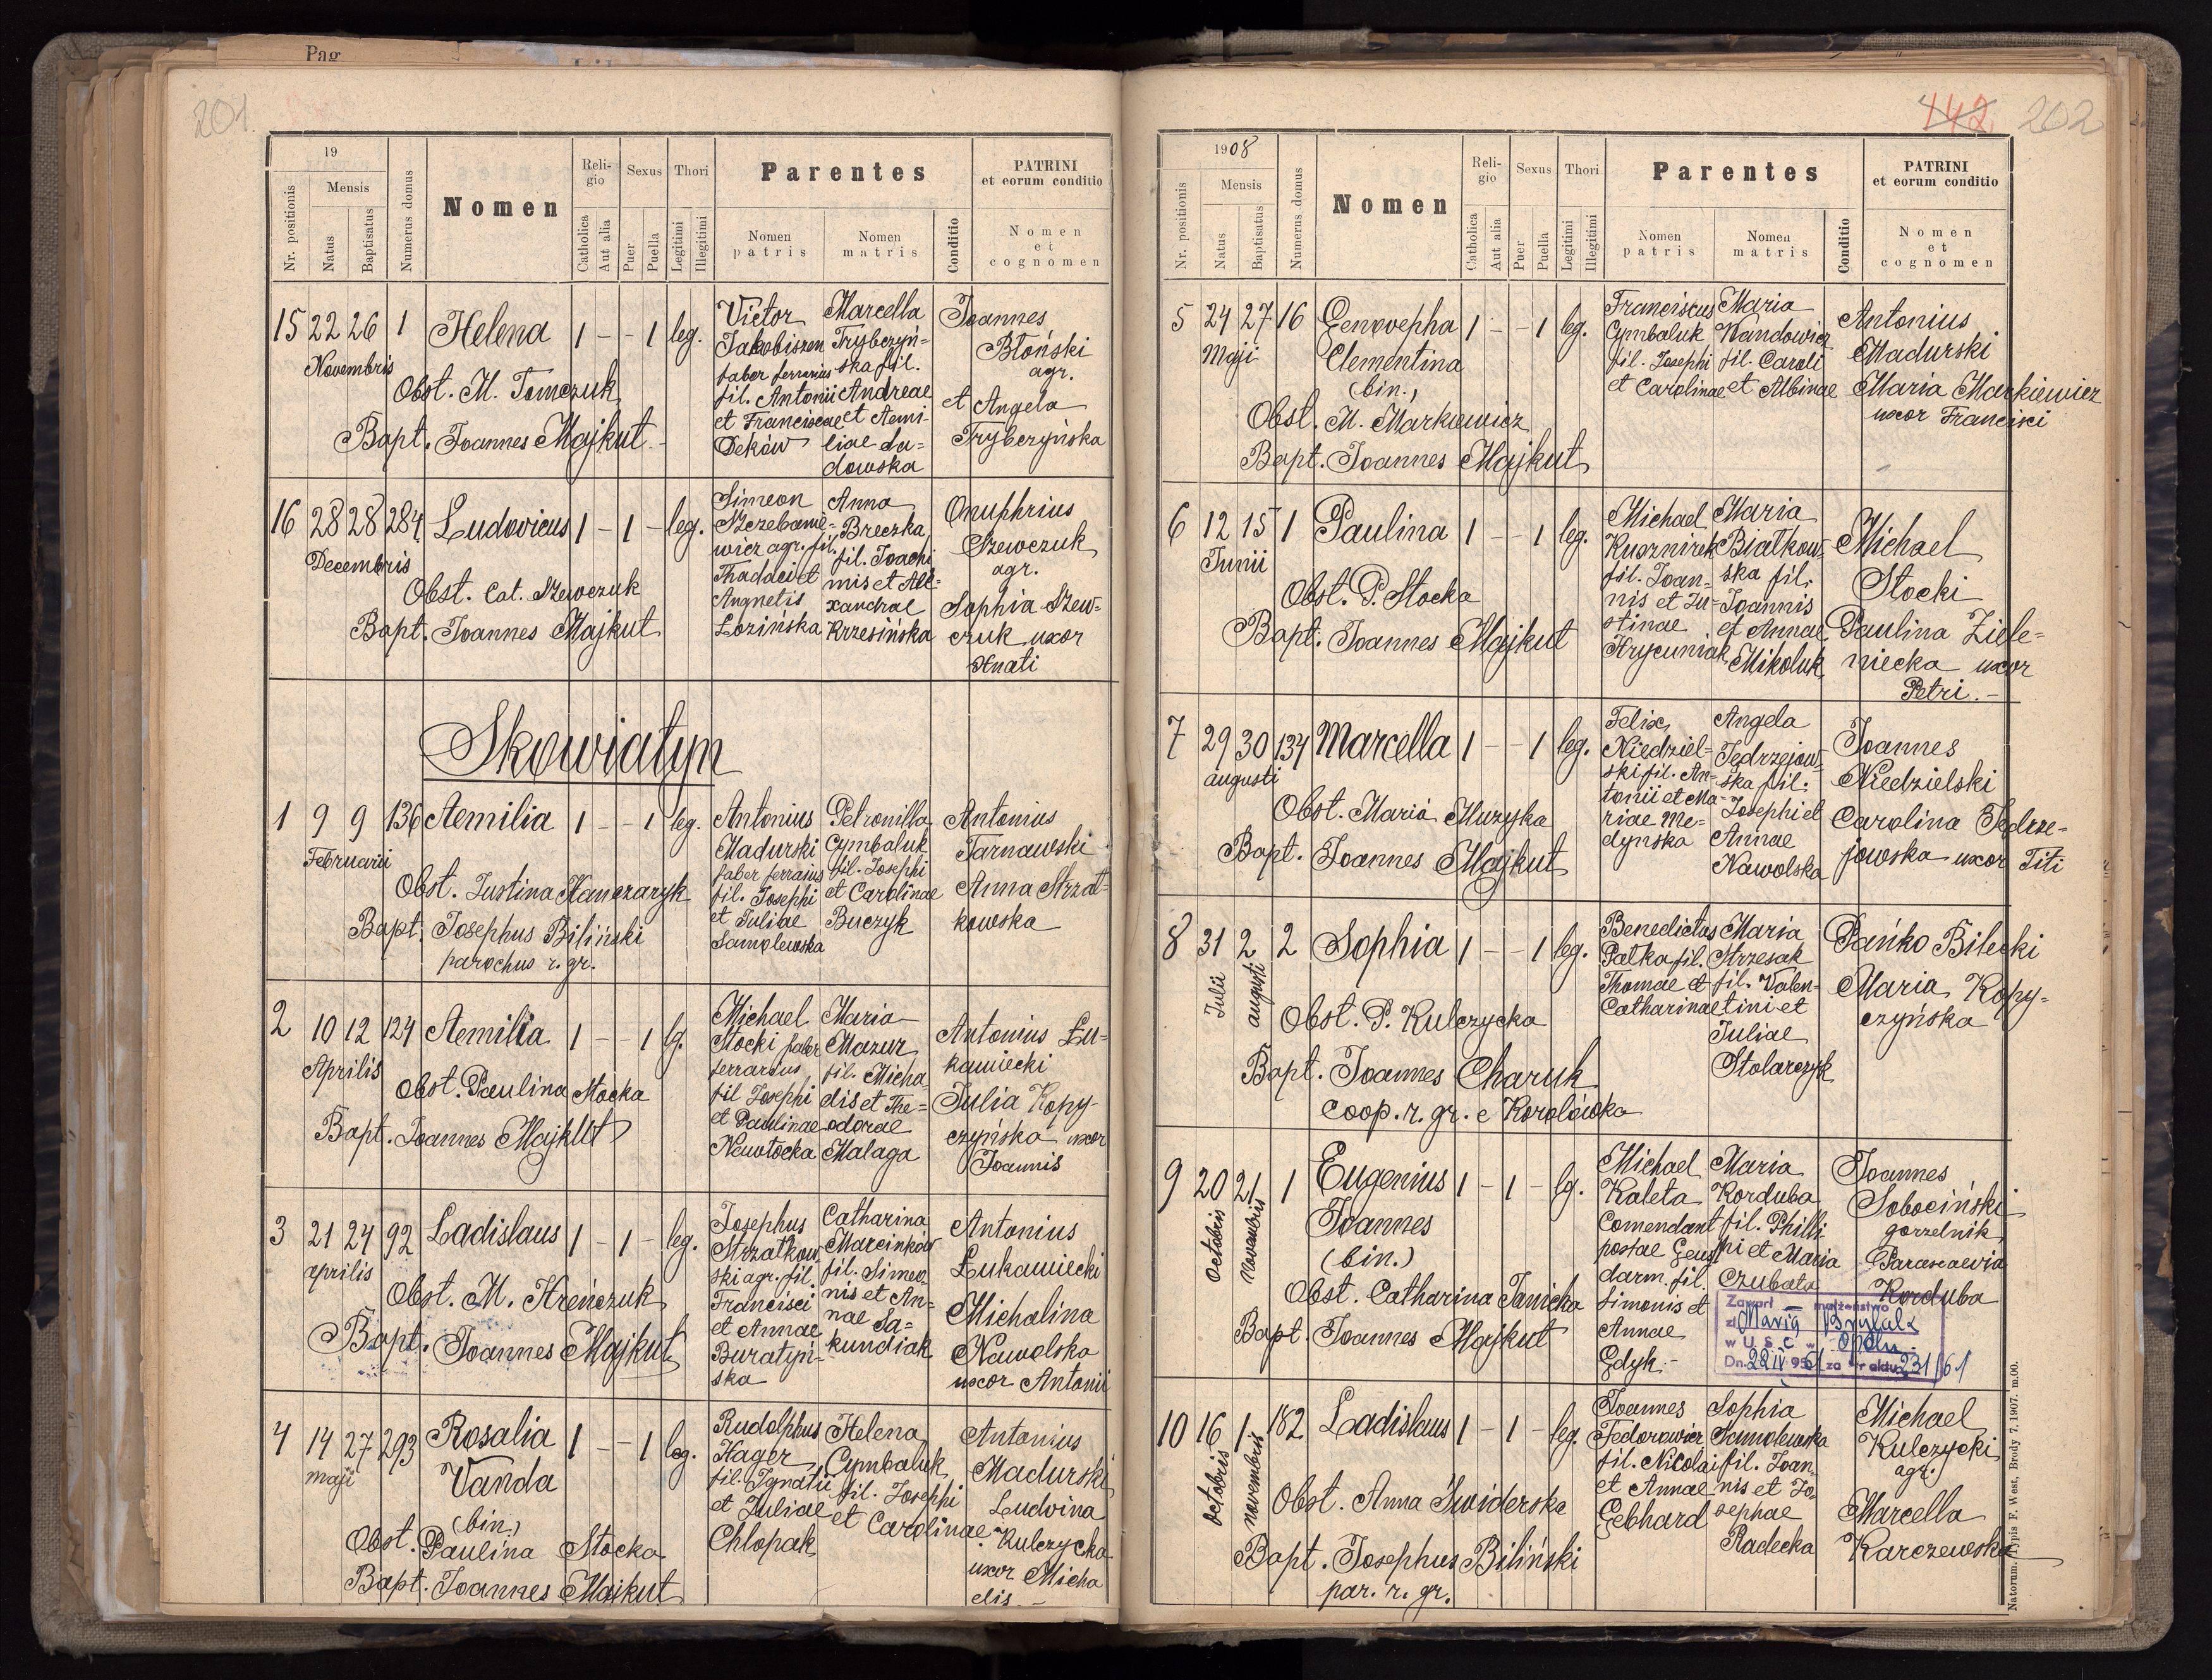 Pag
201
19
Nr. positionis
Mensis
Natus
Baptisatus
Numerus domus
Nomen
Religio
Catholica
Aut alia
Sexus
Puer
Puella
Thori
Legitimi
Illegitimi
Parentes
Nomen patris
Nomen matris
Conditio
PATRINI
et eorum conditio
Nomen
et
cognomen
15 22 26 1 Helena 1 - - 1 leg.
Novembris
Obst. M. Tomczuk
Bapt. Joannes Majkut
Victor
Jakobiszen
faber ferrarius
fil. Antonii
et Franciscae
Deków
Marcella
Trybczyń=
ska fil.
Andreae
et Aemi-
liae Du=
dowska
Joannes
Błoński
agr.
et Angela
Trybczyńska
16 28 28 284 Ludovicus 1 - 1 - leg.
Decembris
Obst. Cat. Szewczuk
Bapt. Joannes Majkut
Simeon
Szczebanie=
wicz agr. fil.
Thadaei et
Angnetis
Łozińska
Anna
Breczka
fil. Joachi
mis et Ale=
xandrae
Krzesińska
Onuphrius
Szewczuk
agr.
Sophia Szew=
czuk uxor
Hnati
Skowiatyn
1 9 9 136 Aemilia 1 - - 1 leg.
Februarii
Obst. Justina Hanczaryk
Bapt. Josephus Biliński
parochus r. gr.
Antonius
Madurski
faber ferraius
fil. Josephi
et Juliae
Samolewska
Petronilla
Cymbaluk
fil. Josephi
et Carolinae
Buczyk
Antonius
Tarnawski
Anna Strzał=
kowska
2 10 12 124 Aemilia 1 - - 1 lg.
Aprilis
Obst. Paulina Stocka
Bapt. Joannes Majkut
Michael
Stocki faber
ferrarius
fil Josephi
et Paulinae
Nowłocka
Maria
Mazur
fil. Micha
elis et The=
odorae
Malaga
Antonius Łu=
kawiecki
Julia Kopy-
czyńska uxor
Joannis
3 21 24 92 Ladislaus 1 - 1 - leg.
aprilis
Obst. M. Hreńczuk
Bapt. Joannes Majkut
Josephus
Strzałkow
ski agr. fil.
Francisci
et Annae
Buratyń-
ska
Catharina
Marcinków
fil. Simeo
nis et An=
nae Sa=
kundiak
Antonius
Łukawiecki
Michalina
Nawolska
uxor Antonii
4 14 27 293 Rosalia 1 - - 1 leg.
maji
Vanda
(bin.)
Obst. Paulina Stocka
Bapt. Joannes Majkut
Rudolphus
Hager
fil. Ignatii
et Juliae
Chlopak
Helena
Cymbaluk
fil. Josephi
et Carolinae
Antonius
Madurski
Ludvina
Kulczycka
uxor Micha
elis -
142 202
1908
Nr. positionis
Mensis
Natus
Baptisatus
Numerus domus
Nomen
Religio
Catholica
Aut alia
Sexus
Puer
Puella
Thori
Legitimi
Illegitimi
Parentes
Nomen patris
Nomen matris
Conditio
PATRINI
et eorum conditio
Nomen
et
cognomen
5 24 27 16 Genovepha 1 - - 1 leg.
Maji
Clementina
(bin.)
Obst. M. Markiewicz
Bapt. Joannes Majkut
Franciscus
Cymbaluk
fil. Josephi
et Carolinae
Maria
Wandowicz
fil. Caroli
et Albinae
Antonius
Madurski
Maria Markiewicz
uxor Francisci
6 12 15 1 Paulina 1 - - 1 leg.
Junii
Obst. P. Stocka
Bapt. Joannes Majkut
Michael
Kusznirek
fil. Joan-
nis et Ju=
stinae
Hrycuniak
Maria
Białkow-
ska fil.
Joannis
et Annae
Mikoluk
Michael
Stocki
Paulina Ziele=
niecka uxor
Petri. -
7 29 30 134 Marcella 1 - - 1 leg.
augusti
Obst. Maria Muzyka
Bapt. Joannes Majkut
Felix
Niedziel=
ski fil. An=
tonii et Ma-
riae Me=
dynska
Angela
Jędrzejow-
ska fil.
Josephi et
Annae
Nawolska
Joannes
Niedzielski
Carolina Jędrze=
jowska uxor Titi
8 31 2 2 Sophia 1 - - 1 leg.
Julii
augusti
Obst. P. Kulczycka
Bapt. Joannes Charuk
coop. r. gr. e Korolówka
Benedictus
Palka fil.
Thomae et
Catharinae
Maria
Strzesak
fil. Valen-
tini et
Juliae
Stolarczyk
Pańko Bilecki
Maria Kopy=
czyńska
9 20 21 1 Eugenius 1 - 1 - lg.
Octobris
Novembris
Joannes
(bin.)
Obst. Catharina Janicka
Bapt. Joannes Majkut
Michael
Kaleta
Comendant
postae Gens
darm. fil.
Simonis et
Annae
Gdyk. -
Maria
Korduba
fil. Philli
pi et Maria
Czubata
Joannes
Sobociński
gorzelnik
Parascaevia
Korduba
Zawarł małżeństwo
z Maria Brylak
w U.S.C. w Opolu
Dn. 22 IV 1961 za nr aktu 231/61
10 16 1 182 Ladislaus 1 - 1 - leg.
octobris
novembris
Obst. Anna Świderska
Bapt. Josephus Biliński
par. r. gr.
Joannes
Fedorowicz
fil. Nicolai
et Annae
Gebhard
Sophia
Samolewska
fil. Joan-
nis et Jo-
sephae
Radecka
Michael
Kulczycki
agr.
Marcella
Karczewska
Natorum. Typis F. West, Brody 7. 1907. m.00.